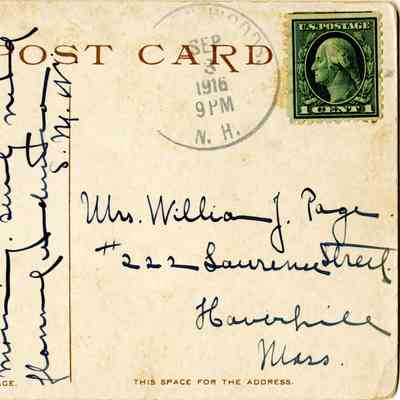 POST CARD
WOOD
SEP
3
1916
9 PM
N. H.
U.S. POSTAGE
1 CENT 1
Mrs. William J. Page.
#222 Lawrence Street.
Haverhill
Mass.
morning.
S. M. N.
THIS SPACE FOR THE ADDRESS.